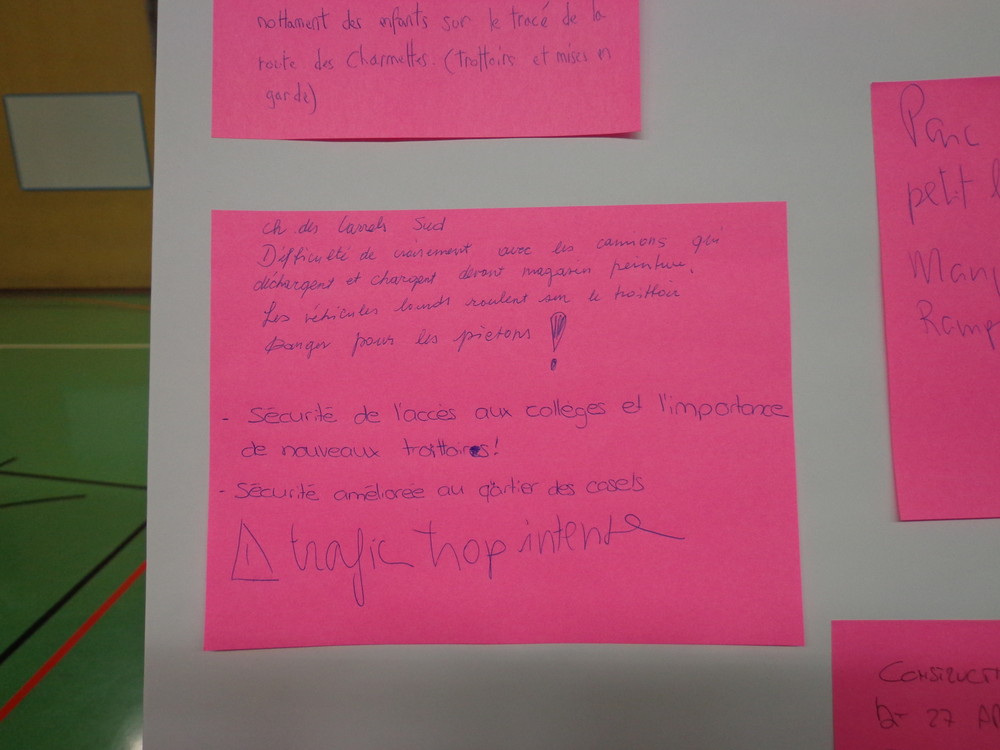 nottament des enfants sur le tracé de la
route des Charmettes. (trottoirs et mises en
garde)
ch. des Sud
Difficulté de croisement avec les camions qui
déchargent et chargent devant magasin peinture.
Les véhicules lourds roulent sur le trottoir
Danger pour les piétons !
- Sécurité de l'accès aux collèges et l'importance
de nouveaux trottoires!
- Sécurité améliorée au qartier des casels
⚠ trafic trop intense
Parc
petit
Ramp
CONSTRUCTI
27 AP